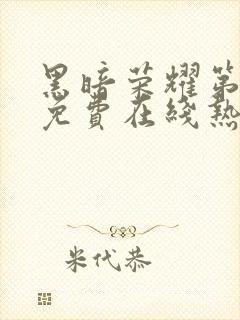 黑暗荣耀第
免費在线熱
米代恭